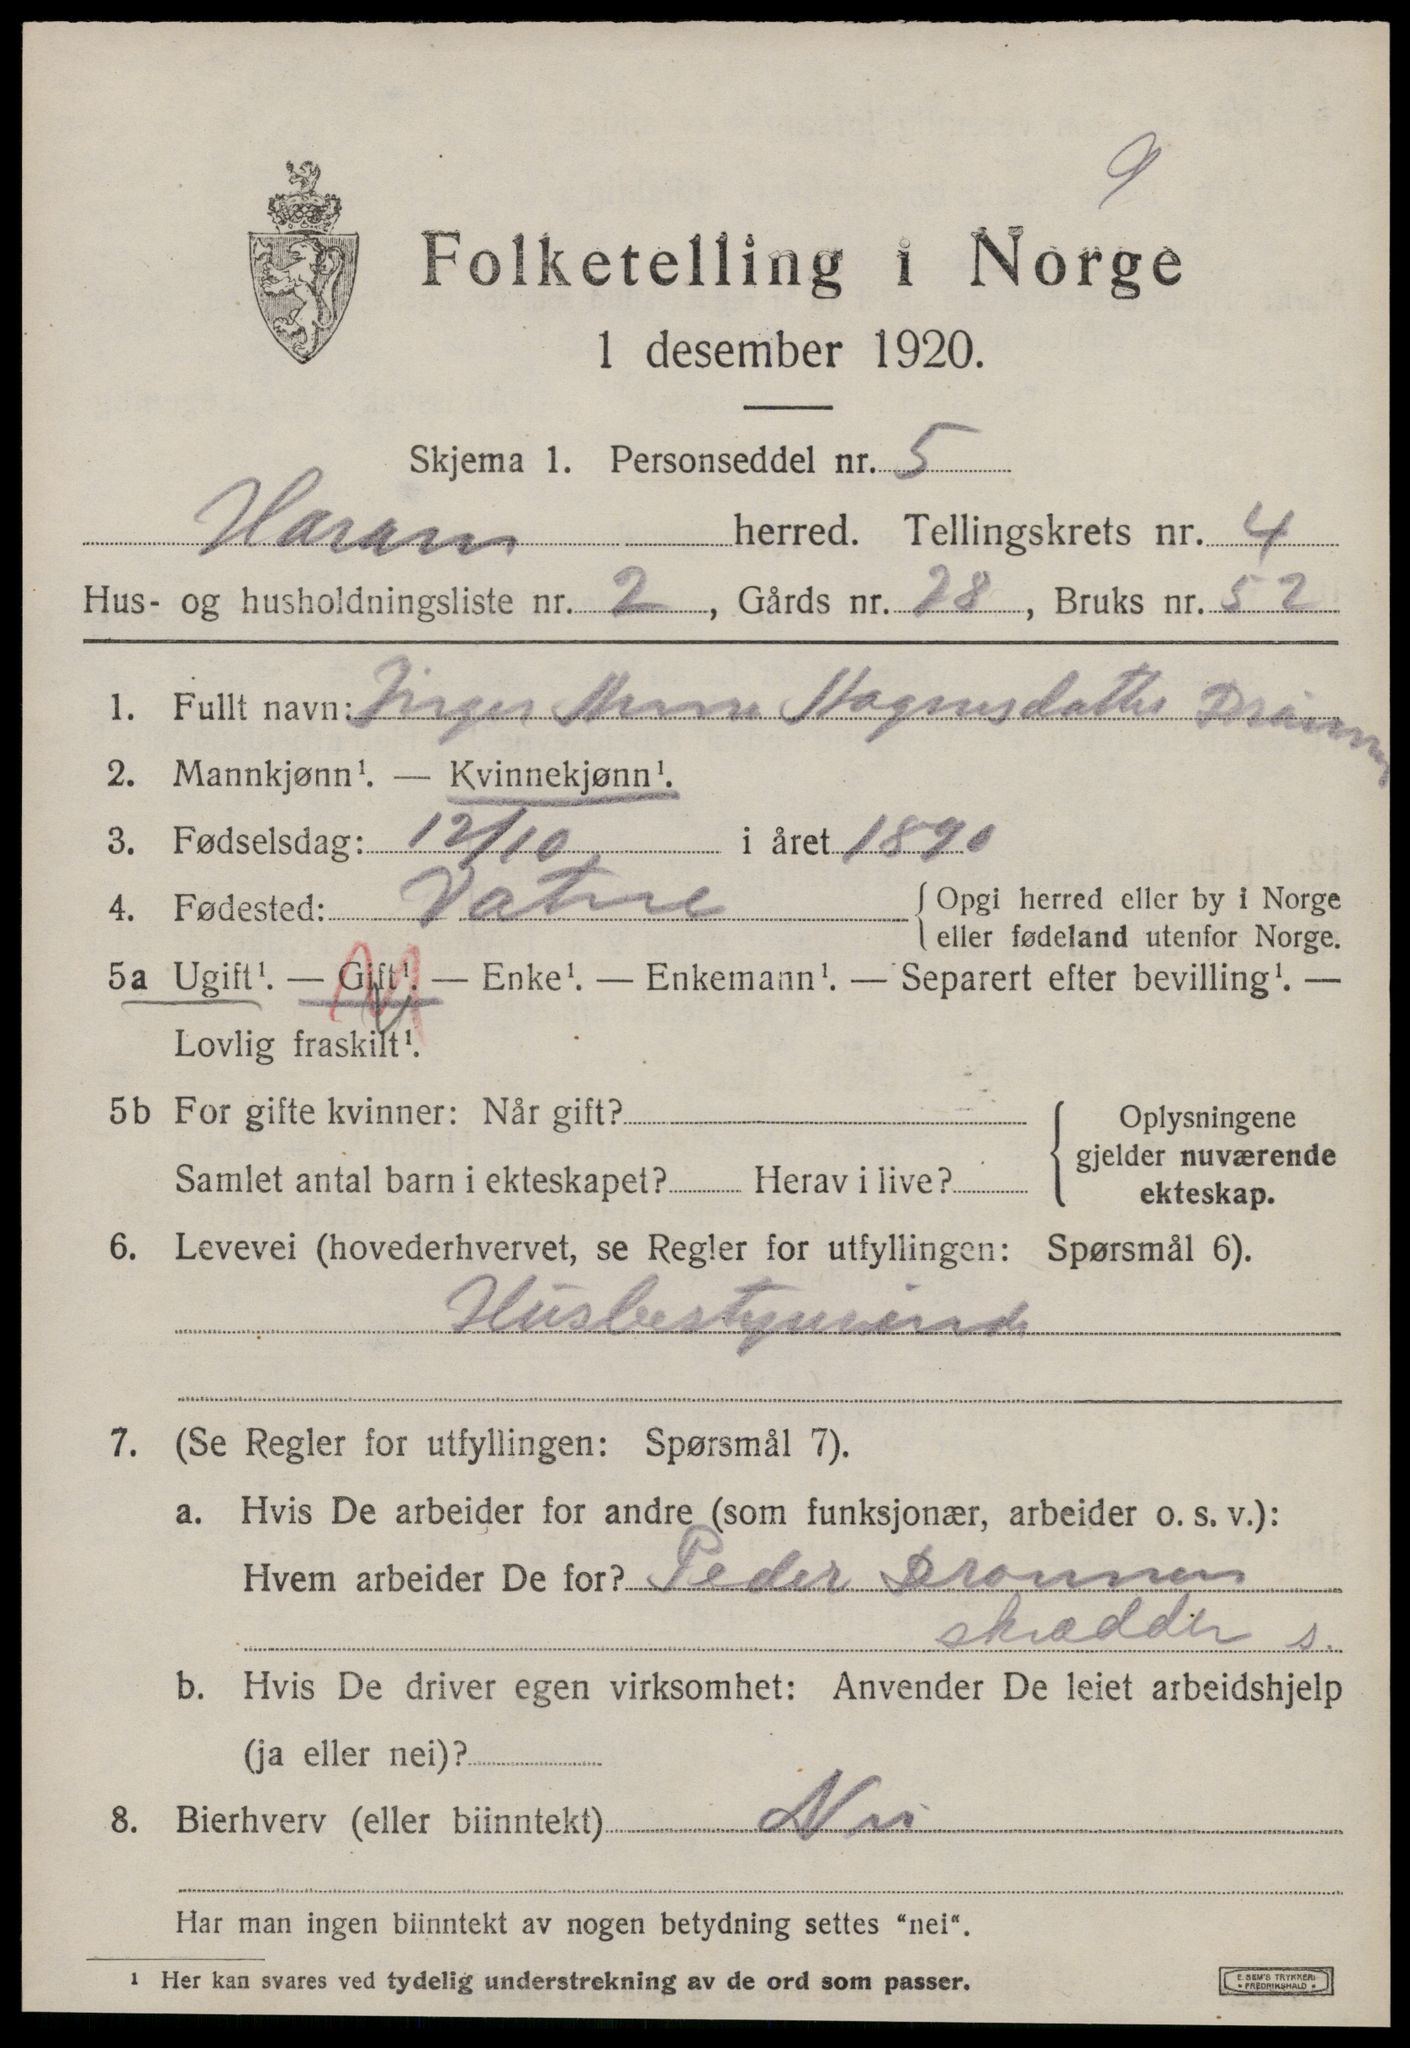 9
Folketelling i Norge
1 desember 1920.
Skjema 1. Personseddel nr. 5
Haram herred. Tellingskrets nr. 4
Hus- og husholdningsliste nr. 2, Gårds nr. 28, Bruks nr. 52
1. Fullt navn: Inger Magnusdatter
2. Mannkjønn¹. — Kvinnekjønn¹.
3. Fødselsdag: 12/10 i året 1890
4. Fødested: Vatne { Opgi herred eller by i Norge
eller fødeland utenfor Norge.
5a Ugift¹. — Gift¹. — Enke¹. — Enkemann¹. — Separert efter bevilling¹. —
Lovlig fraskilt¹.
5b For gifte kvinner: Når gift?
Samlet antal barn i ekteskapet? Herav i live?
{ Oplysningene
gjelder nuværende
ekteskap.
6. Levevei (hovederhvervet, se Regler for utfyllingen: Spørsmål 6).
Husbestyrerinde
7. (Se Regler for utfyllingen: Spørsmål 7).
a. Hvis De arbeider for andre (som funksjonær, arbeider o. s. v.):
Hvem arbeider De for? Peder Dronnen
skrædder s.
b. Hvis De driver egen virksomhet: Anvender De leiet arbeidshjelp
(ja eller nei)?
8. Bierhverv (eller biinntekt) Nei
Har man ingen biinntekt av nogen betydning settes "nei".
1 Her kan svares ved tydelig understrekning av de ord som passer.
E. SEM'S TRYKKERI
FREDRIKSHALD